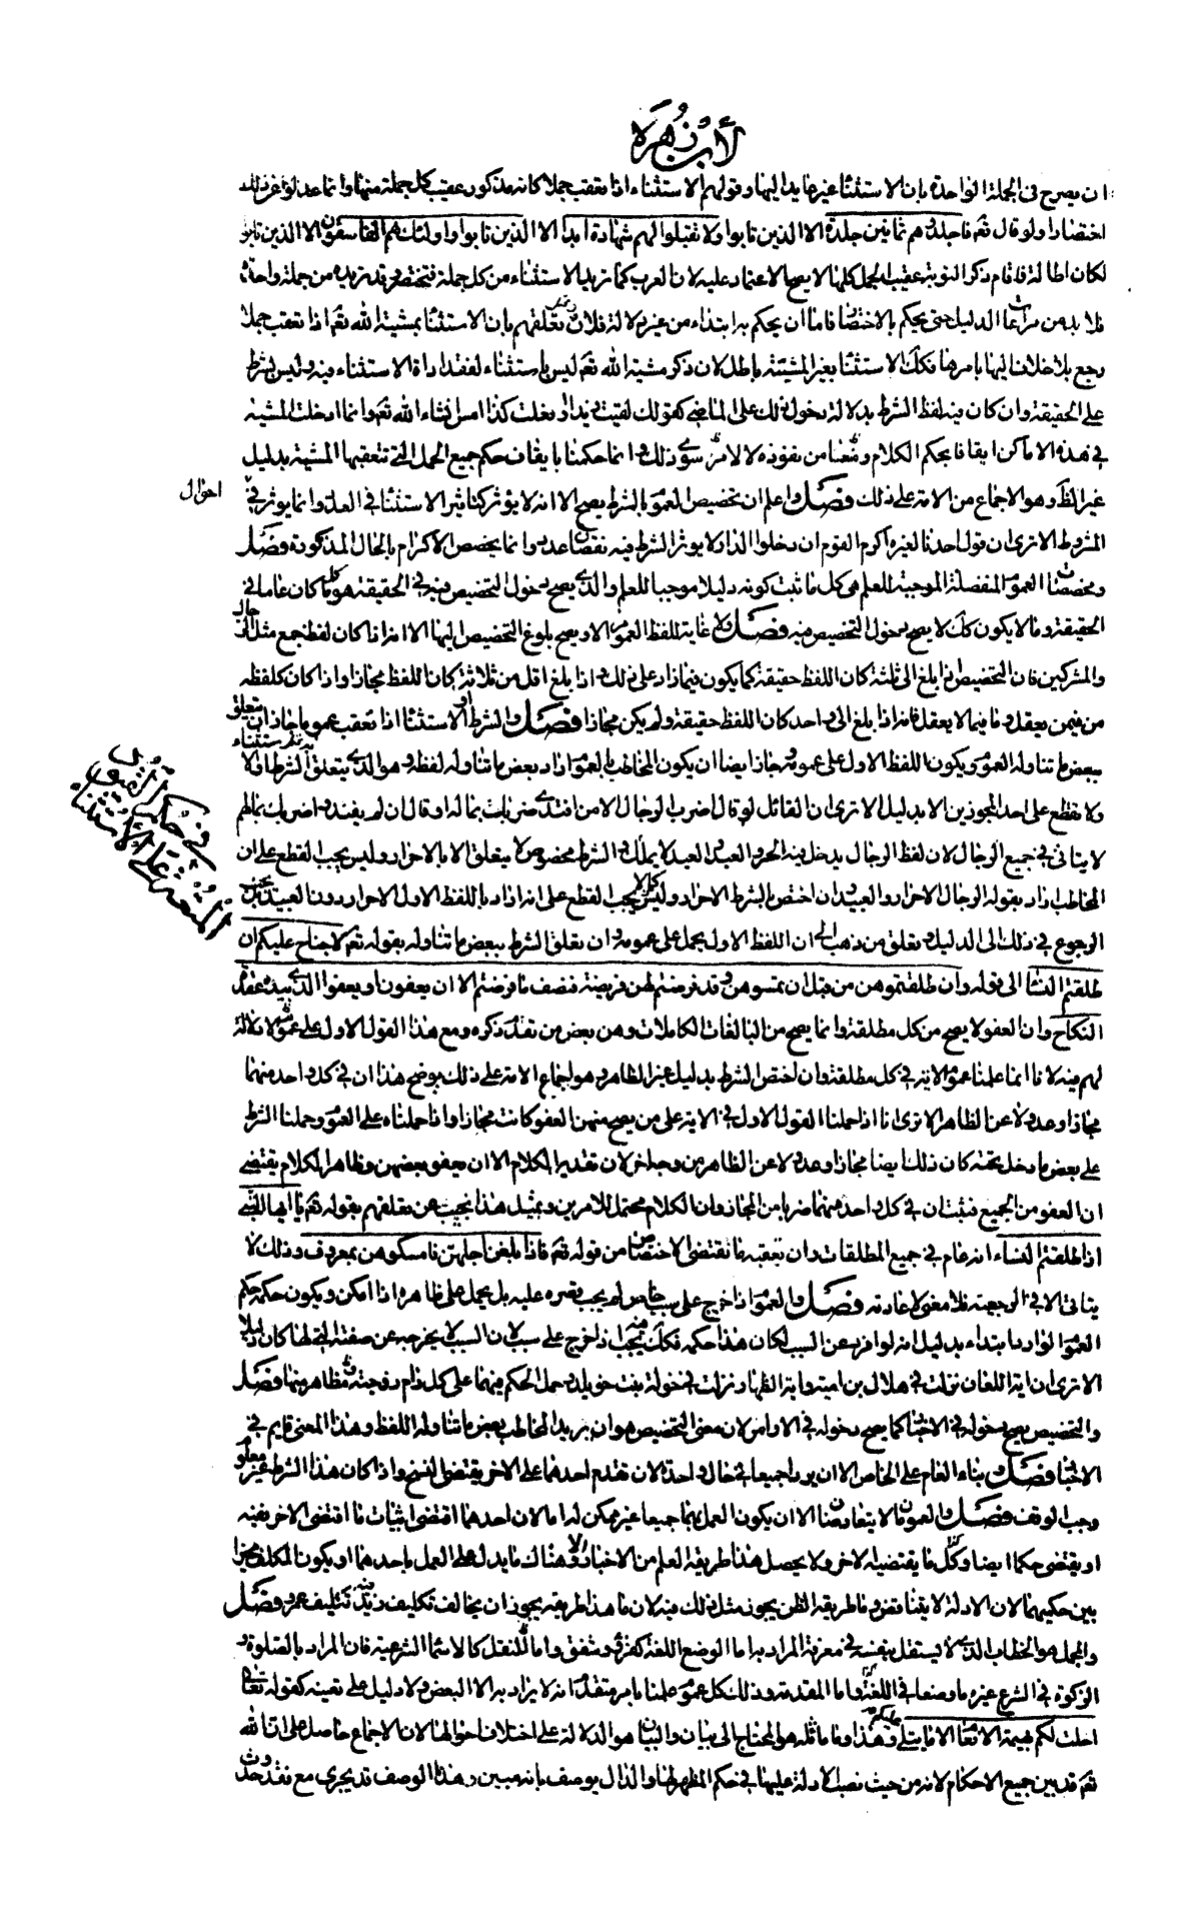 لأبن زهرة
ان يصرح فى الجملة الواحدة بان الاستثنا غير عايد اليها وقولهم الاستثناء اذا تعقب جملا كانه مذكور عقيب كل جملة منها وانما عدلوا عن ذلك
اختصارا ولو قال تعم فاجلدوهم ثمانين جلدة الا الذين تابوا ولا تقبلوا لهم شهادة ابدا الا الذين تابوا واولئك هم الفاسقون الا الذين تابوا
لكان اطالة فاقام ذكر التوبة عقيب الجمل كلها لا يصح الاعتماد عليه لان العرب كما تريد الاستثناء من كل جملة فتختصر وقد تريده من جملة واحدة
فلا بد من مراعاة الدليل حتى يحكم بالاختصار فاما ان يحكم به ابتداء من غير دلالة فلا وتعلقهم بان الاستثنا بمشية الله تعم اذا تعقب جملا
رجع بلا خلاف اليها باسرها فكك الاستثنا بغير المشية باطل لان ذكر مشية الله تعم ليس باستثناء لفقد اداة الاستثناء فيه وليس بشرط
على الحقيقة وان كان فيه لفظ الشرط بدلالة دخول ذلك على الماضى كقولك لقيت زيدا وفعلت كذا امس انشاء الله تعم وانما دخلت المشية
فى هذه الاماكن ايقافا بحكم الكلام ومنعا من نفوذه لا لامر سوى ذلك وانما حكمنا بايقاف حكم جميع الجمل التى تتعقبها المشية بدليل
غير اللفظ وهو الاجماع من الامة على ذلك فصل واعلم ان تخصيص العموم بالشرط يصح الا انه لا يوثر كتاثير الاستثنا فى العدد وانما يوثر فى
احوال
المشروط الا ترى ان قول احدنا لغيره اكرم القوم ان دخلوا الدار لا يوثر الشرط فيه نقصان عدد وانما يخصص الاكرام بالحال المذكورة فصل
ومخصصات العموم المنفصلة الموجبة للعلم هى كل ما ثبت كونه دليلا موجبا للعلم والذى يصح دخول التخصيص فيه فى الحقيقة هو كلما كان عاما فى
الحقيقة وما لا يكون كك لا يصح دخول التخصيص فيه فصل ولا غاية للفظ العموم الا ويصح بلوغ التخصيص اليها الا انه اذا كان لفظ جمع مثل الرجال
والمشركين فان التخصيص اذا بلغ الى ثلثة كان اللفظ حقيقة كما يكون فيما زاد على ذلك واذا بلغ اقل من ثلاثة كان اللفظ مجازا واذا كان كلفظه
من فيمن يعقل وما فيما لا يعقل فانه اذا بلغ الى واحد كان اللفظ حقيقة ولم يكن مجازا فصل والشرط او الاستثنا اذا تعقب عموما جاز ان يتعلق
ببعض ما تناوله العموم ويكون اللفظ الاول على عمومه وجاز ايضا ان يكون المخاطب بالعموم اراد بعض ما تناوله لفظه وهو الذى يتعلق الشرط
فى حكم القيود المتعقبة على الاستثناء
ولا يقطع على احد المجوزين الا بدليل الا ترى ان القائل لو قال اضرب الرجال الا من افتدى ضربك بماله او قال ان لم يفتدوا ضربك بمالهم
لا يتاتى فى جميع الرجال لان لفظ الرجال يدخل فيه الحر والعبد والعبد لا يملك والشرط مخصوص لا يتعلق الا بالاحرار وليس يجب القطع على ان
المخاطب اراد بقوله الرجال الاحرار والعبيد وان اختص بالشرط الاحرار وليس يجب القطع على انه اراد باللفظ الاول الاحرار دون العبيد بل يجب
الرجوع فى ذلك الى الدليل وتعلق من ذهب الى ان اللفظ الاول يحمل على عمومه وان تعلق الشرط ببعض ما تناوله بقوله تعم لا جناح عليكم ان
طلقتم النسا الى قوله وان طلقتموهن من قبل ان تمسوهن وقد فرضتم لهن فريضة فنصف ما فرضتم الا ان يعفون او يعفوا الذى بيده عقدة
النكاح وان العفو لا يصح من كل مطلقة وانما يصح من البالغات الكاملات وهن بعض من تقدم ذكره ومع هذا القول الاول على عمومه لا دلالة
لهم فيه لانا انما علمنا عموم الاية فى كل مطلقة وان اختص الشرط بدليل غير الظاهر وهو اجماع الامة على ذلك يوضح هذا ان فى كل واحد منهما
مجازا وعدولا عن الظاهر الا ترى انا اذا حملنا القول الاول فى الاية على من يصح منهن العفو كانت مجازا واذا حملناه على العموم وحملنا الشرط
على بعض ما دخل تحته كان ذلك ايضا مجازا وعدولا عن الظاهر من وجه اخر لان تقدير الكلام الا ان يعفو بعضهن وظاهر الكلام يقتضى
ان العفو من الجميع فثبت ان فى كل واحد منهما ضربا من المجاز وان الكلام محتمل للامرين وبمثل هذا نجيب عن تعلقهم بقوله تعم يا ايها النبى
اذا طلقتم النساء انه عام فى جميع المطلقات وان تعقبه ما يقتضى الاختصاص من قوله تعم فاذا بلغن اجلهن فامسكوهن بمعروف وذلك لا
يتاتى الا فى الرجعية فلا معنى لاعادته فصل والعموم اذا خرج على سبب خاص لم يجب قصره عليه بل يحمل على ظاهره اذا امكن ويكون حكمه حكم
العموم الوارد ابتداء بدليل انه لو افرد عن السبب لكان هذا حكمه فكك يجب اذا خرج على سبب لان السبب لا يخرجه عن صفته التى لها كان دليلا
الا ترى ان اية اللعان نزلت فى هلال بن امية واية الظهار نزلت فى خولة بنت خويلد وحمل الحكم فيهما على كل رام زوجته ومظاهر منها فصل
والتخصيص يصح دخوله فى الاخبار كما يصح دخوله فى الاوامر لان معنى التخصيص هو ان يريد المخاطب بعض ما تناوله اللفظ وهذا المعنى قايم فى
الاخبار فصل وبناء العام على الخاص الا ان يردا جميعا فى حال واحدة لان تقدم احدهما على الاخر يقتضى النسخ واذا كان هذا الشرط غير معلوم
وجب الوقف فصل والعمومان لا يتعارضان الا ان يكون العمل بهما جميعا غير ممكن لامر الا لان احدهما اقتضى اثبات ما اقتضى الاخر نفيه
او يقتضى حكما ايضا وكل ما يقتضيه الاخر ولا يحصل هذا طريقه العلم من الاخبار الا وهناك ما يدل على العمل باحدهما او يكون المكلف مخيرا
بين حكميهما لان الادلة لا يتناقض وما طريقه الظن يجوز مثل ذلك فيه لان ما هذا طريقه يجوز ان يخالف تكليف زيد فيه تكليف عمرو فصل
والمجمل هو الخطاب الذى لا يستقل بنفسه فى معرفة المراد به اما لوضع اللغة كقرء وشفق واما للنقل كالاسما الشرعية فان المراد بالصلوة و
الزكوة فى الشرع غير ما وضعا فى اللغة واما لمقدمة وذلك كل عموم علمنا بامر متقدم انه لا يراد به الا البعض ولا دليل على تعينه كقوله تعالى
احلت لكم بهيمة الانعام الا ما يتلى عليكم وهذا وما ماثله هو المحتاج الى بيان والبيان هو الدلالة على اختلاف احوالها لان الاجماع حاصل على ان الله
تعم قد بين جميع الاحكام لانه من حيث نصب الادلة عليها فى حكم المظهر لها والدال يوصف بانه مبين وهذا الوصف قد يجرى مع فقد حدوث